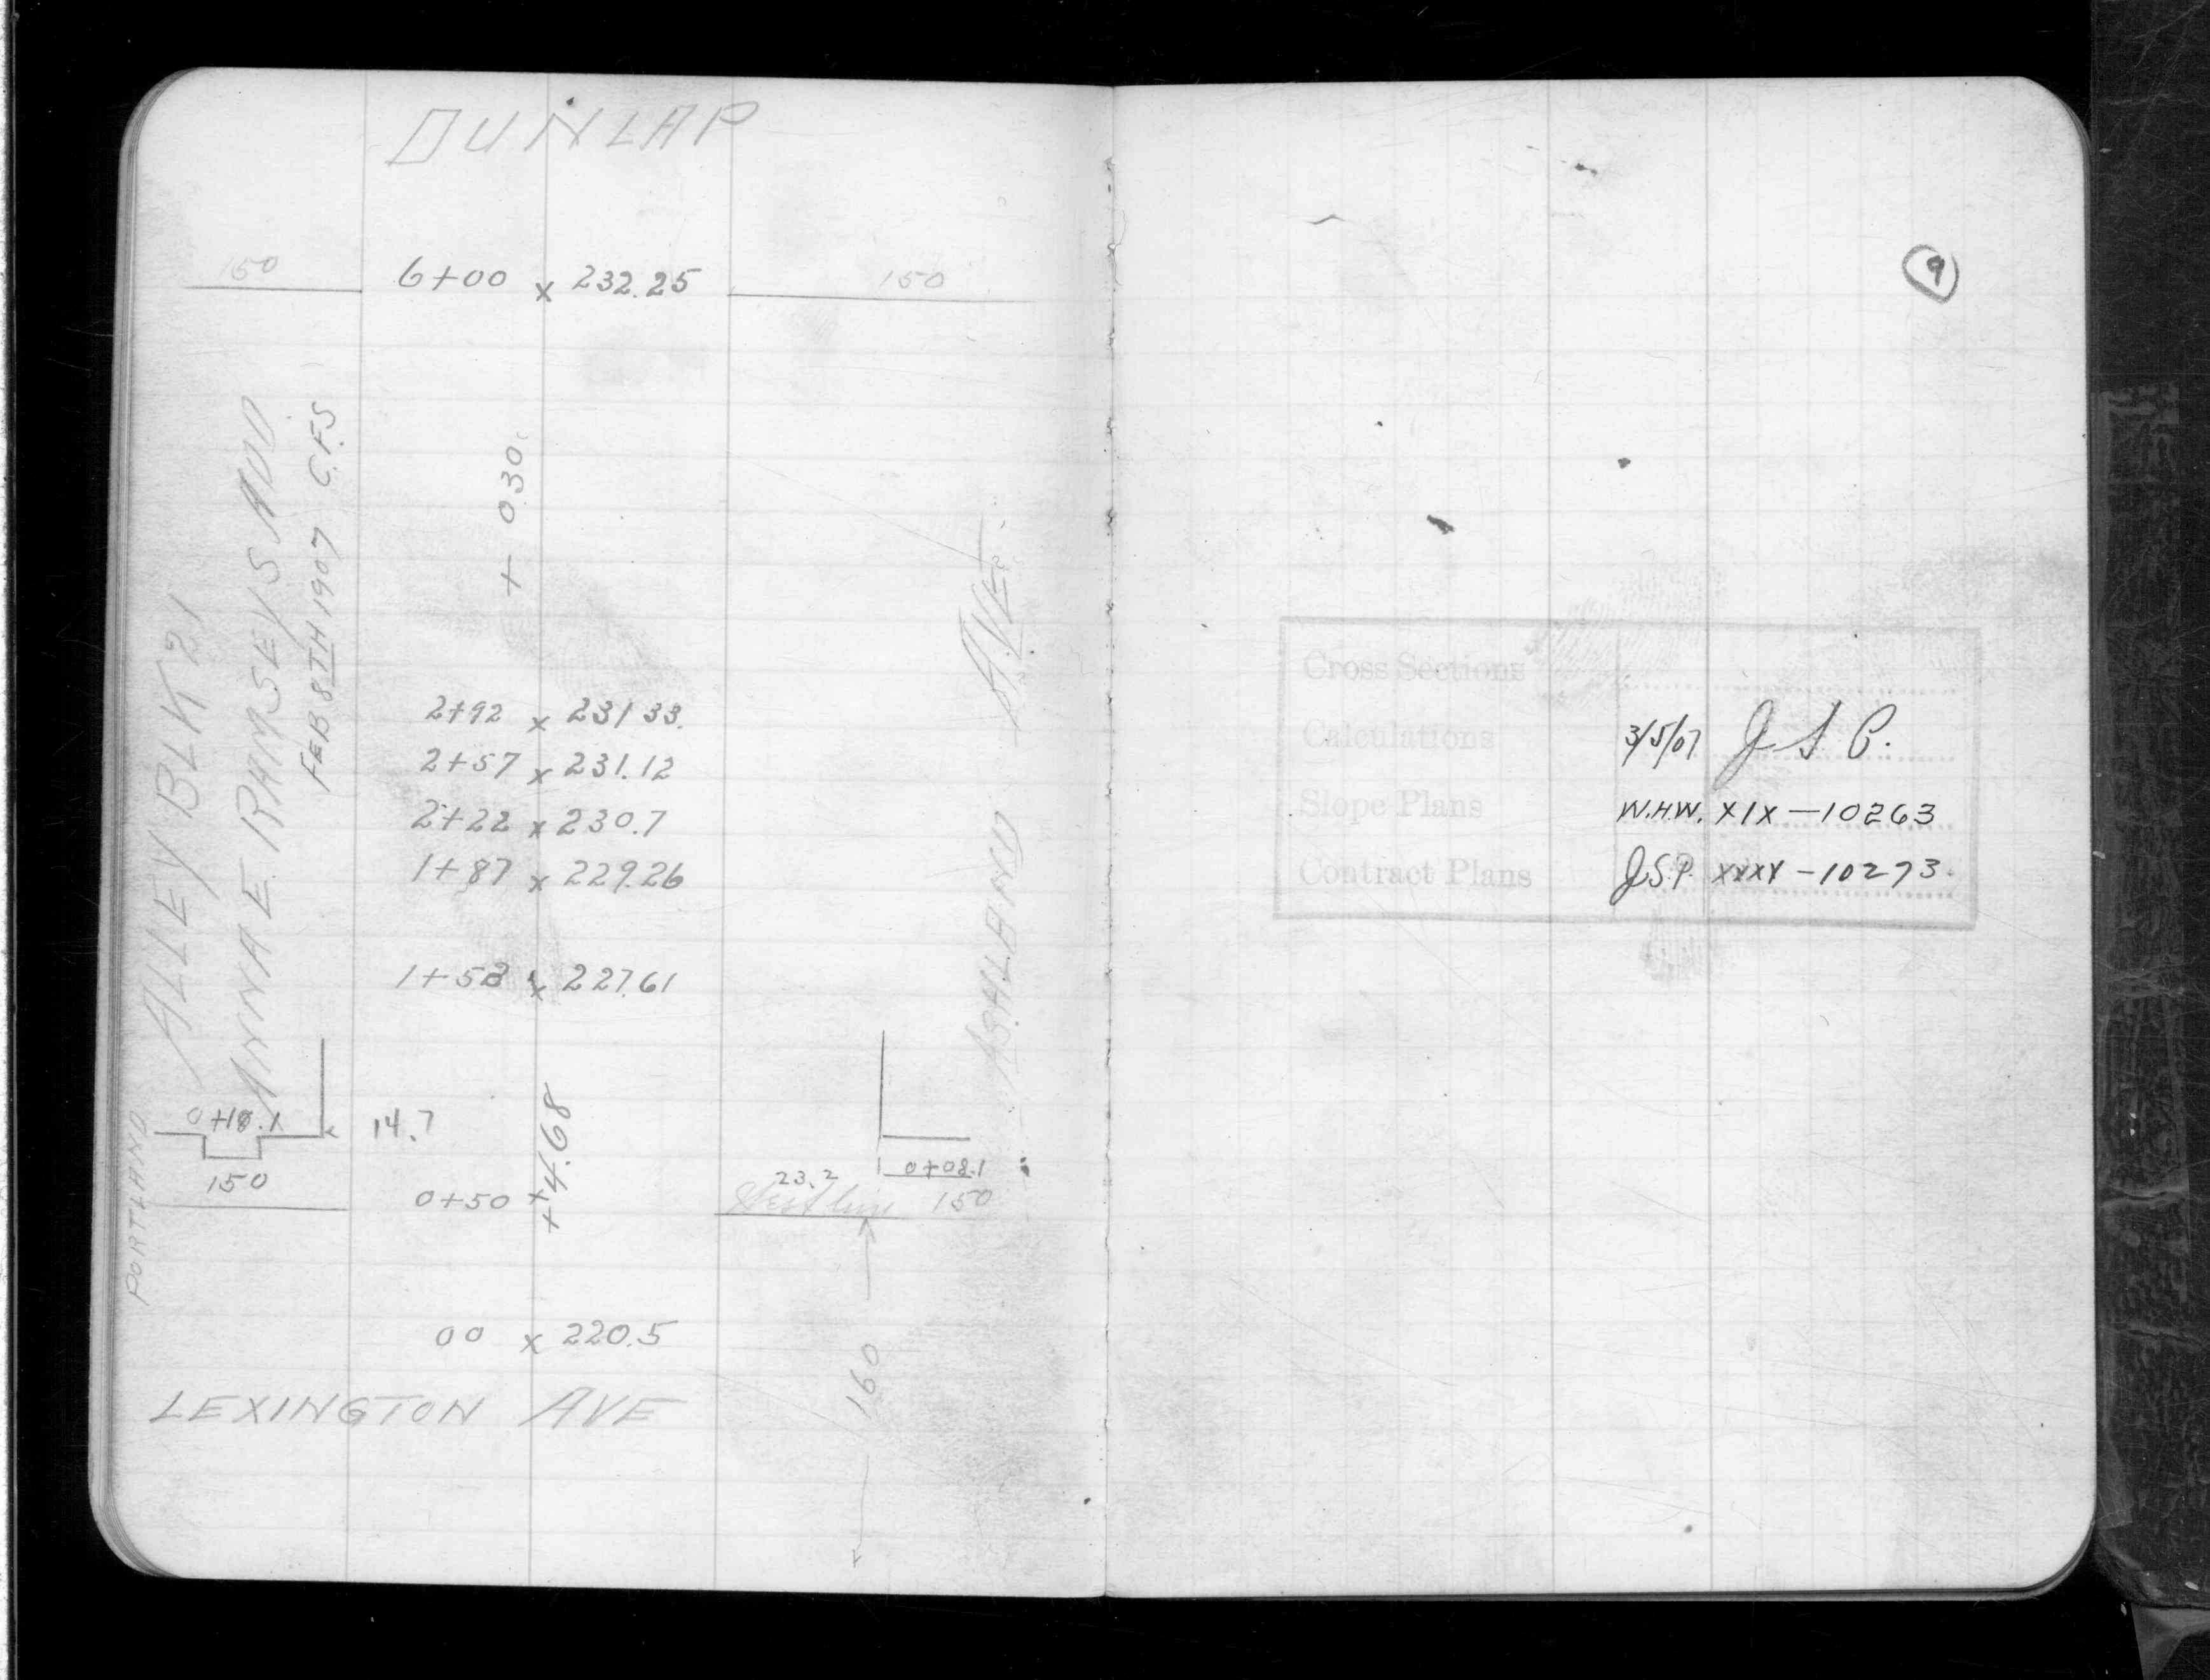 DUNLAP
150 6+00 x 232.25 150
+ 0.30
ALLEY BLK 21
ANNA E. RAMSEYS ADD
FEB 8TH 1907 C.F.S
2+92 x 231 33.
2+57 x 231.12
2+22 x 230.7
1+87 x 229.26
1+53 x 227.61
ASHLAND AVE.
0+10.1 14.7
+4.68
0+08.1
23.2
150 0+50 + 150
PORTLAND
160
00 x 220.5
LEXINGTON AVE
9
Cross Sections
Calculations 3/5/07 J S P.
Slope Plans W.H.W. XIX-10263
Contract Plans J.S.P. XXXX-10273.